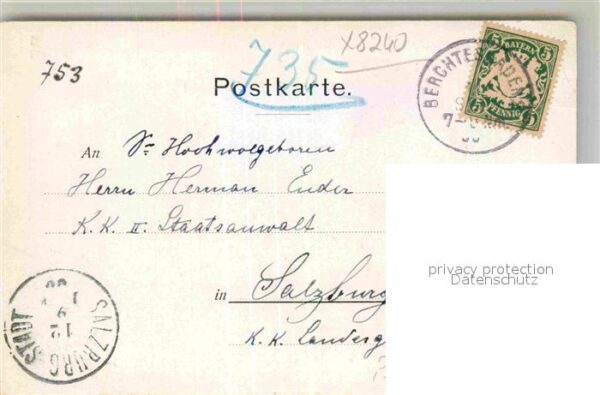 753
735
X8240
Postkarte.
BERCHTESGADEN
7-8
5 BAYERN 5
5 PFENNIG 5
An Sr Hochwolgeboren
Herrn Herman Ender
K. K. II. Staatsanwalt
in Salzburg
K. K. Landesg
SALZBURG STADT
12
9
privacy protection
Datenschutz